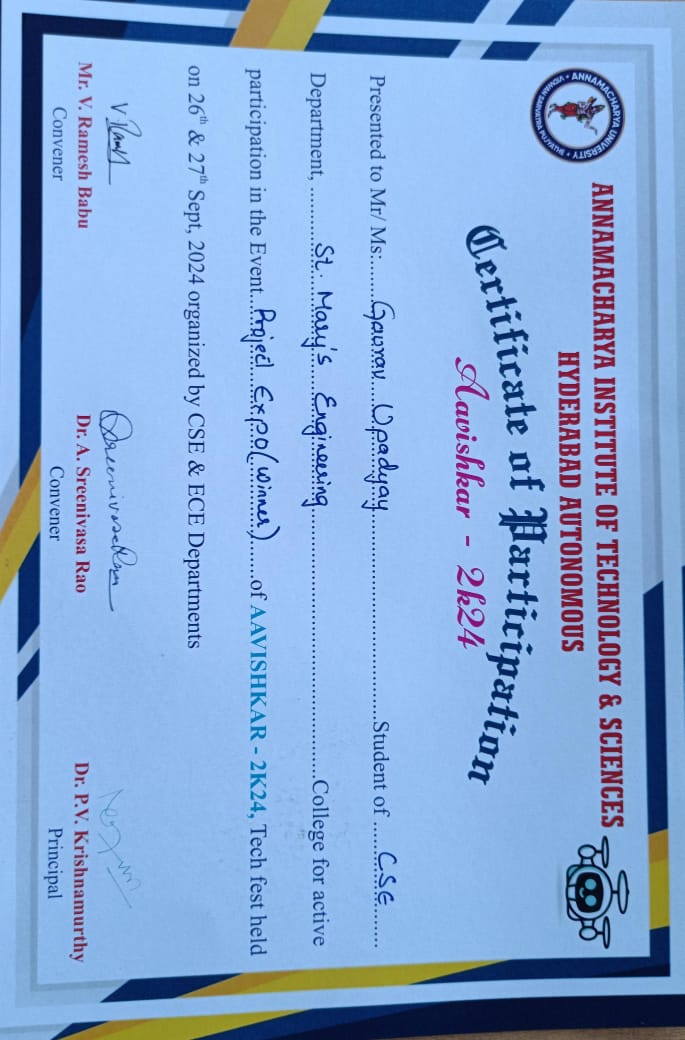 ANNAMACHARYA UNIVERSITY
VIDWAN SARVATRA PUJYATHE
ANNAMACHARYA INSTITUTE OF TECHNOLOGY & SCIENCES
HYDERABAD AUTONOMOUS
Certificate of Participation
Aavishkar - 2k24
Presented to Mr/ Ms:......Gaurav Upadyay......Student of ......CSE......
Department, ......St. Mary's Engineering......College for active
participation in the Event...Project Expo (Winner)......of AAVISHKAR - 2K24, Tech fest held
on 26th & 27th Sept, 2024 organized by CSE & ECE Departments
Mr. V. Ramesh Babu Dr. A. Sreenivasa Rao Dr. P.V. Krishnamurthy
Convener Convener Principal